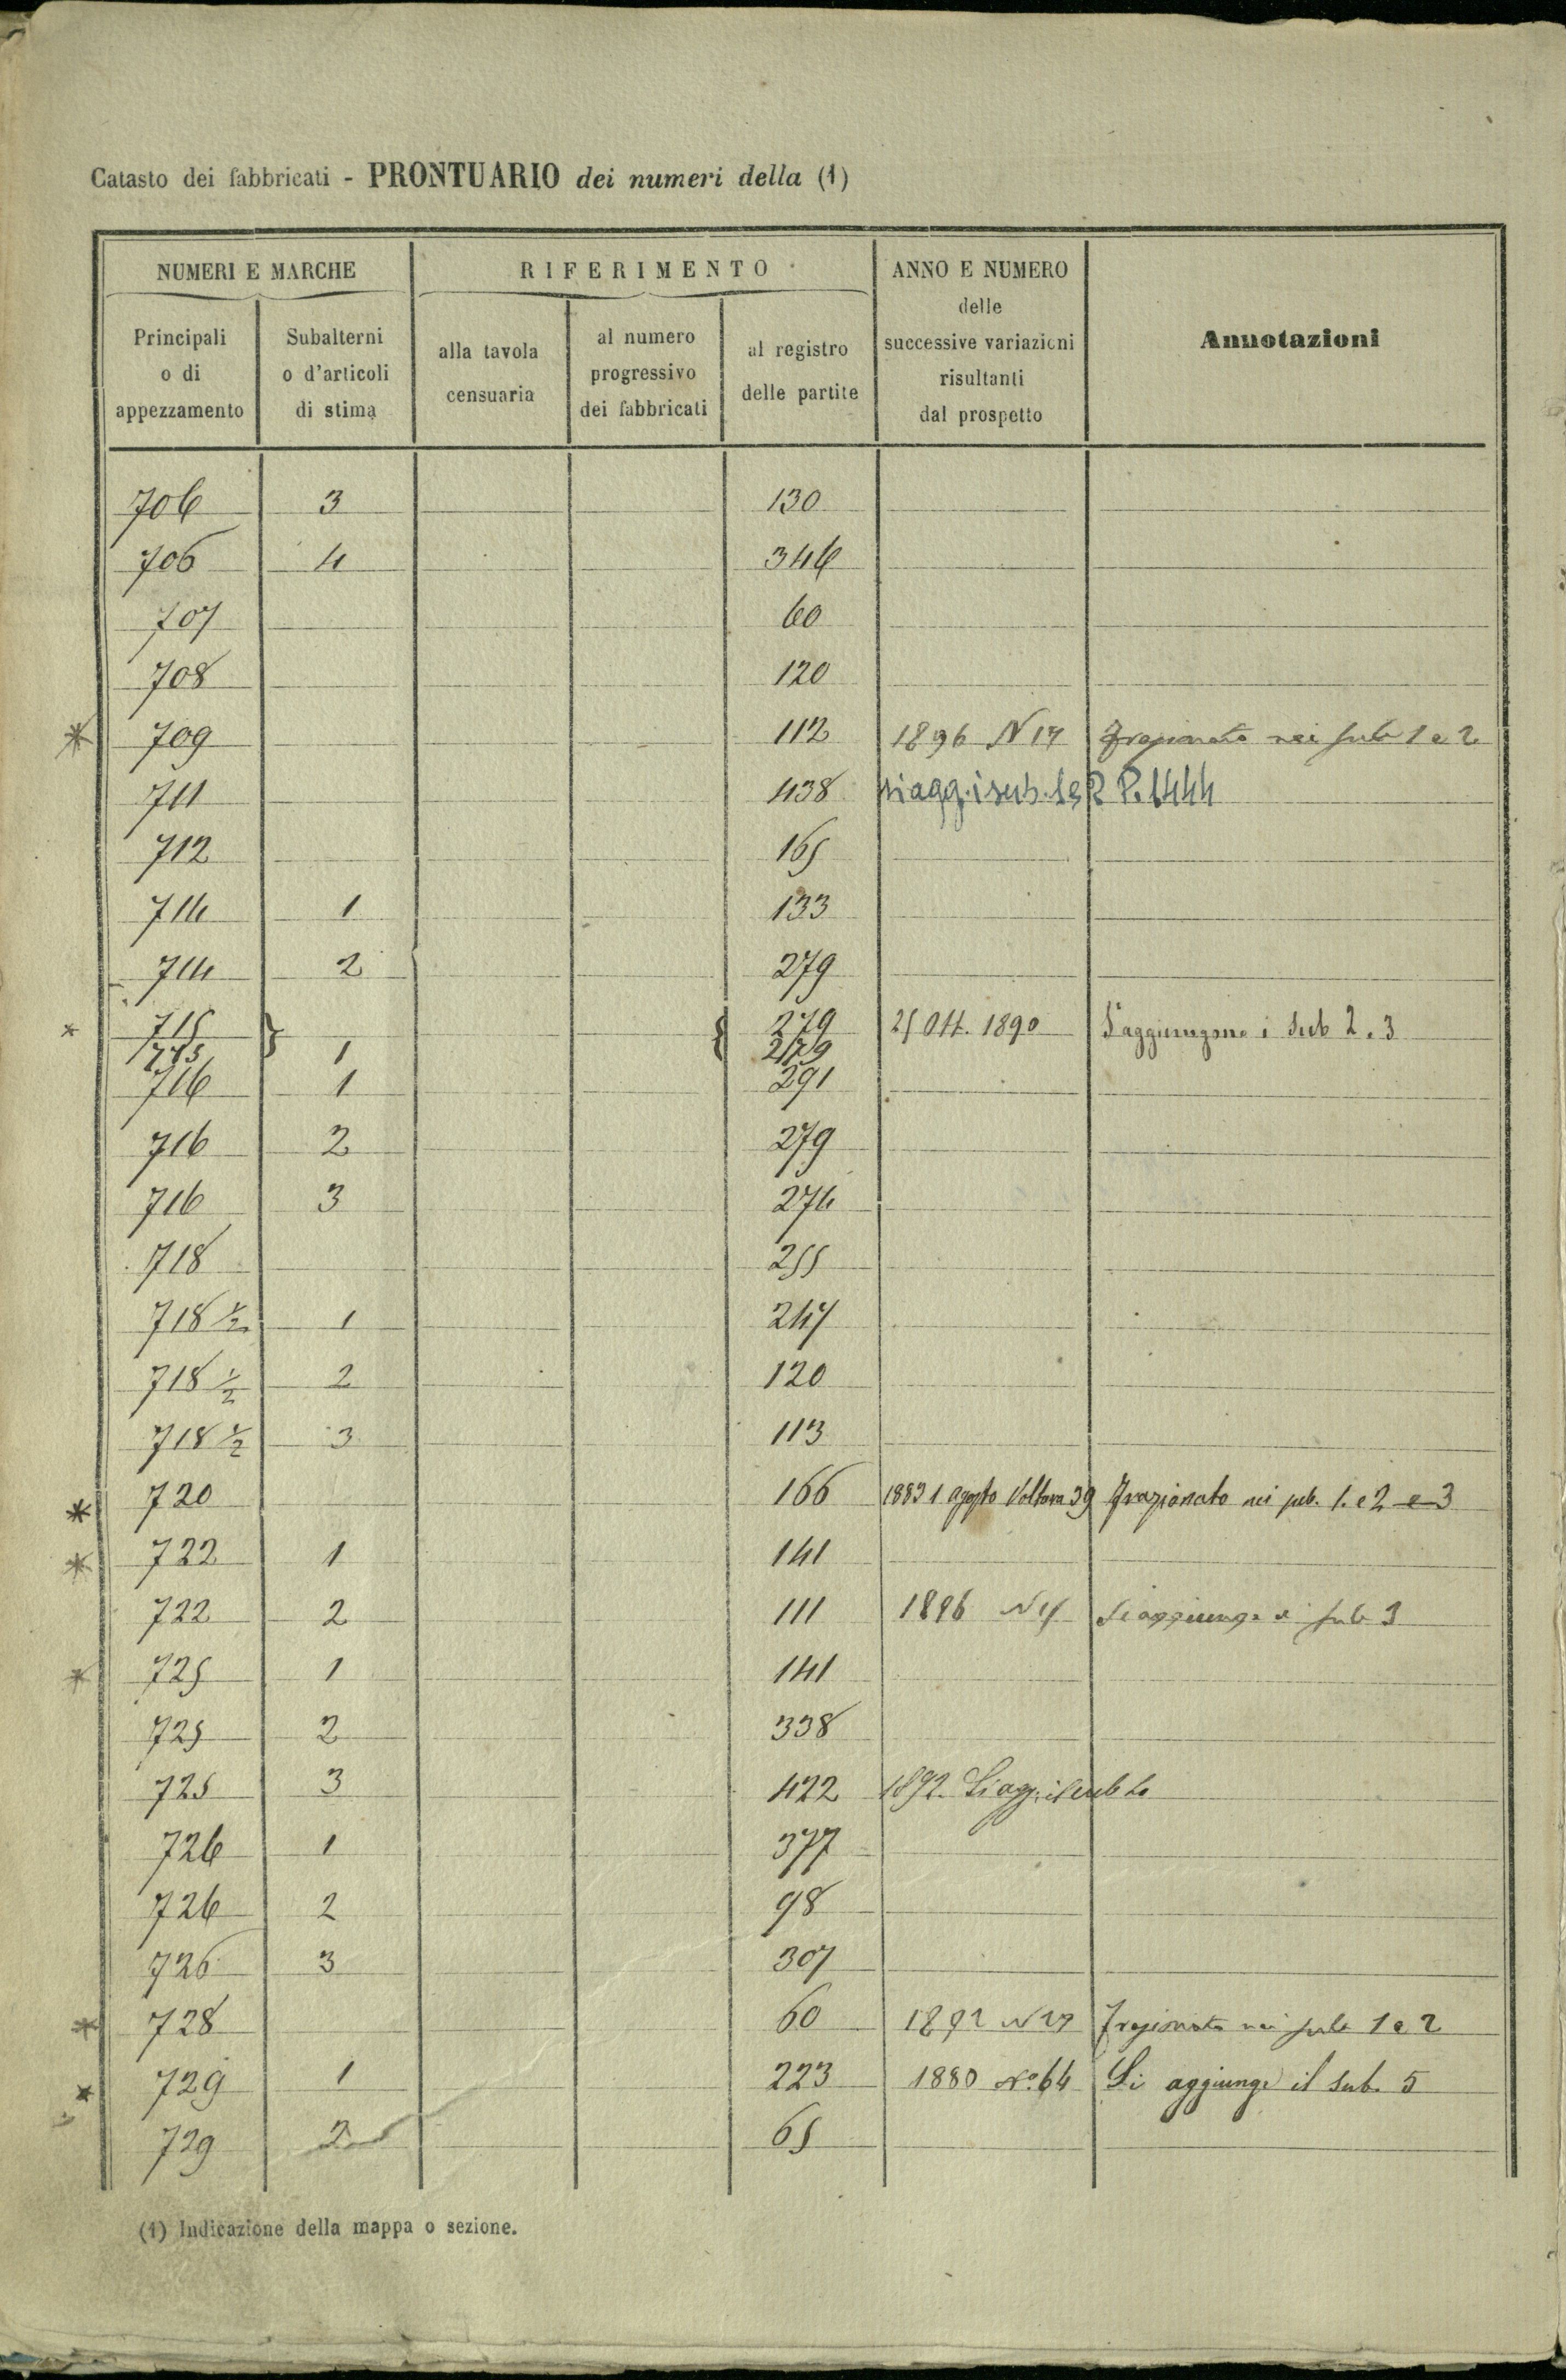 Catasto dei fabbricati - PRONTUARIO dei numeri della (1)
NUMERI E MARCHE
RIFERIMENTO
ANNO E NUMERO
delle
successive variazioni
risultanti
dal prospetto
Annotazioni
Principali
o di
appezzamento
Subalterni
o d'articoli
di stima
alla tavola
censuaria
al numero
progressivo
dei fabbricati
al registro
delle partite
706 3 130
706 4 346
707 60
708 120
* 709 112 1896 N 17 Frazionato nei sub 1 e 2
711 438 si agg. i sub. 1 e 2 P. 1444
712 165
714 1 133
714 2 279
* 715 } { 279 25 Ott. 1890 S'aggiungono i sub 2. 3
715 1 279
716 1 291
716 2 279
716 3 274
718 255
718 1/2 1 247
718 1/2 2 120
718 1/2 3 113
* 720 166 1883 1 agosto Voltura 39 Frazionato nei sub. 1. e 2 e 3
* 722 1 141
722 2 111 1896 Si aggiunge il sub 3
* 725 1 141
725 2 338
725 3 422 1892. Si agg. il sub 4
726 1 377
726 2 98
726 3 307
* 728 60 1892 N 29 Frazionato nei sub 1 e 2
* 729 1 223 1880 No. 64 Si aggiunge il sub. 5
729 2 65
(1) Indicazione della mappa o sezione.